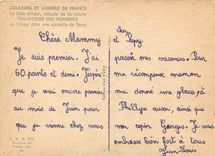 COULEURS ET LUMIÈRE DE FRANCE
La Côte d'Azur, miracle de la nature
CALANQUES DES ISSAMBRES
Le Village dans une corbeille de fleurs
Chère Mammy
Je suis premier. J'ai
60 points et demi. J'espère
que je serai encore premier
au mois de Juin pour
que je vienne chez vous
et Papy
passer mes vacances. Pour
ma récompense maman
me donne une glace à
Phillippe aussi, ainsi que
mon copin Georges. Je vous
embrasse bien fort à tous
Jean-Louis